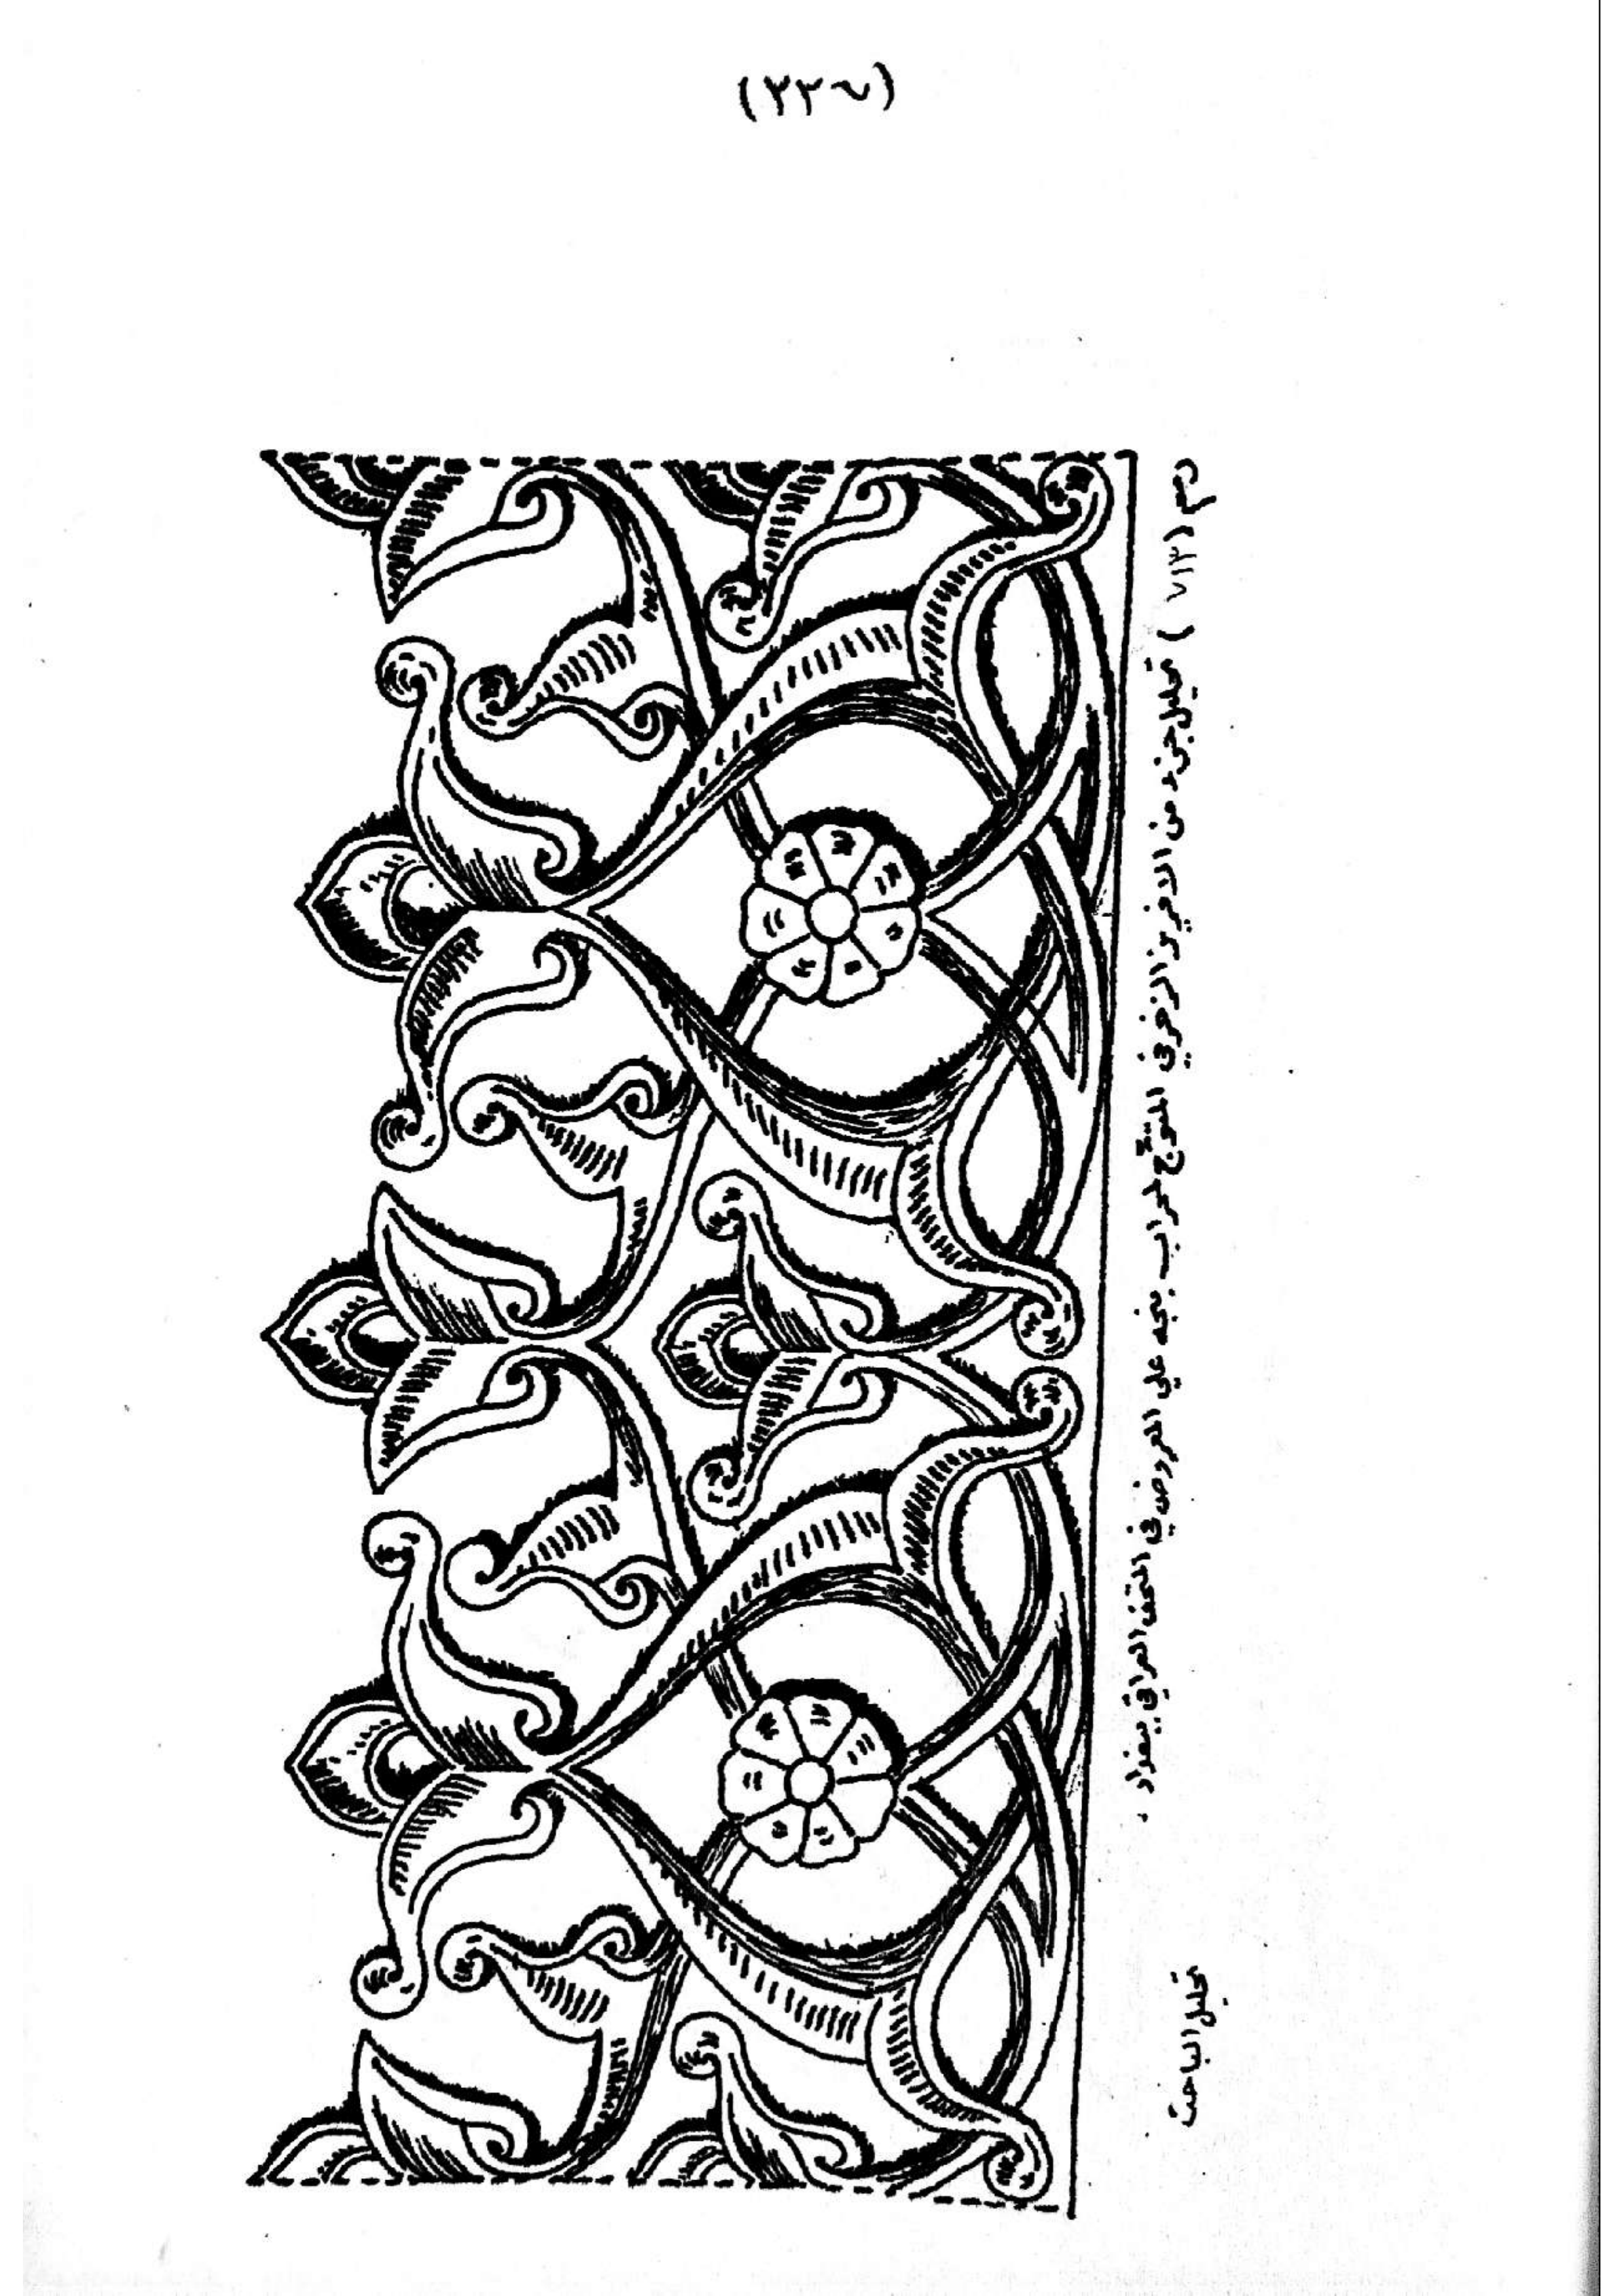 رسم (٧١٣) تحليل جزء من الافريز الزخرفي المتوّج لمحراب بنجه علي المعروض في المتحف العراقي ببغداد .
تحليل الباحث